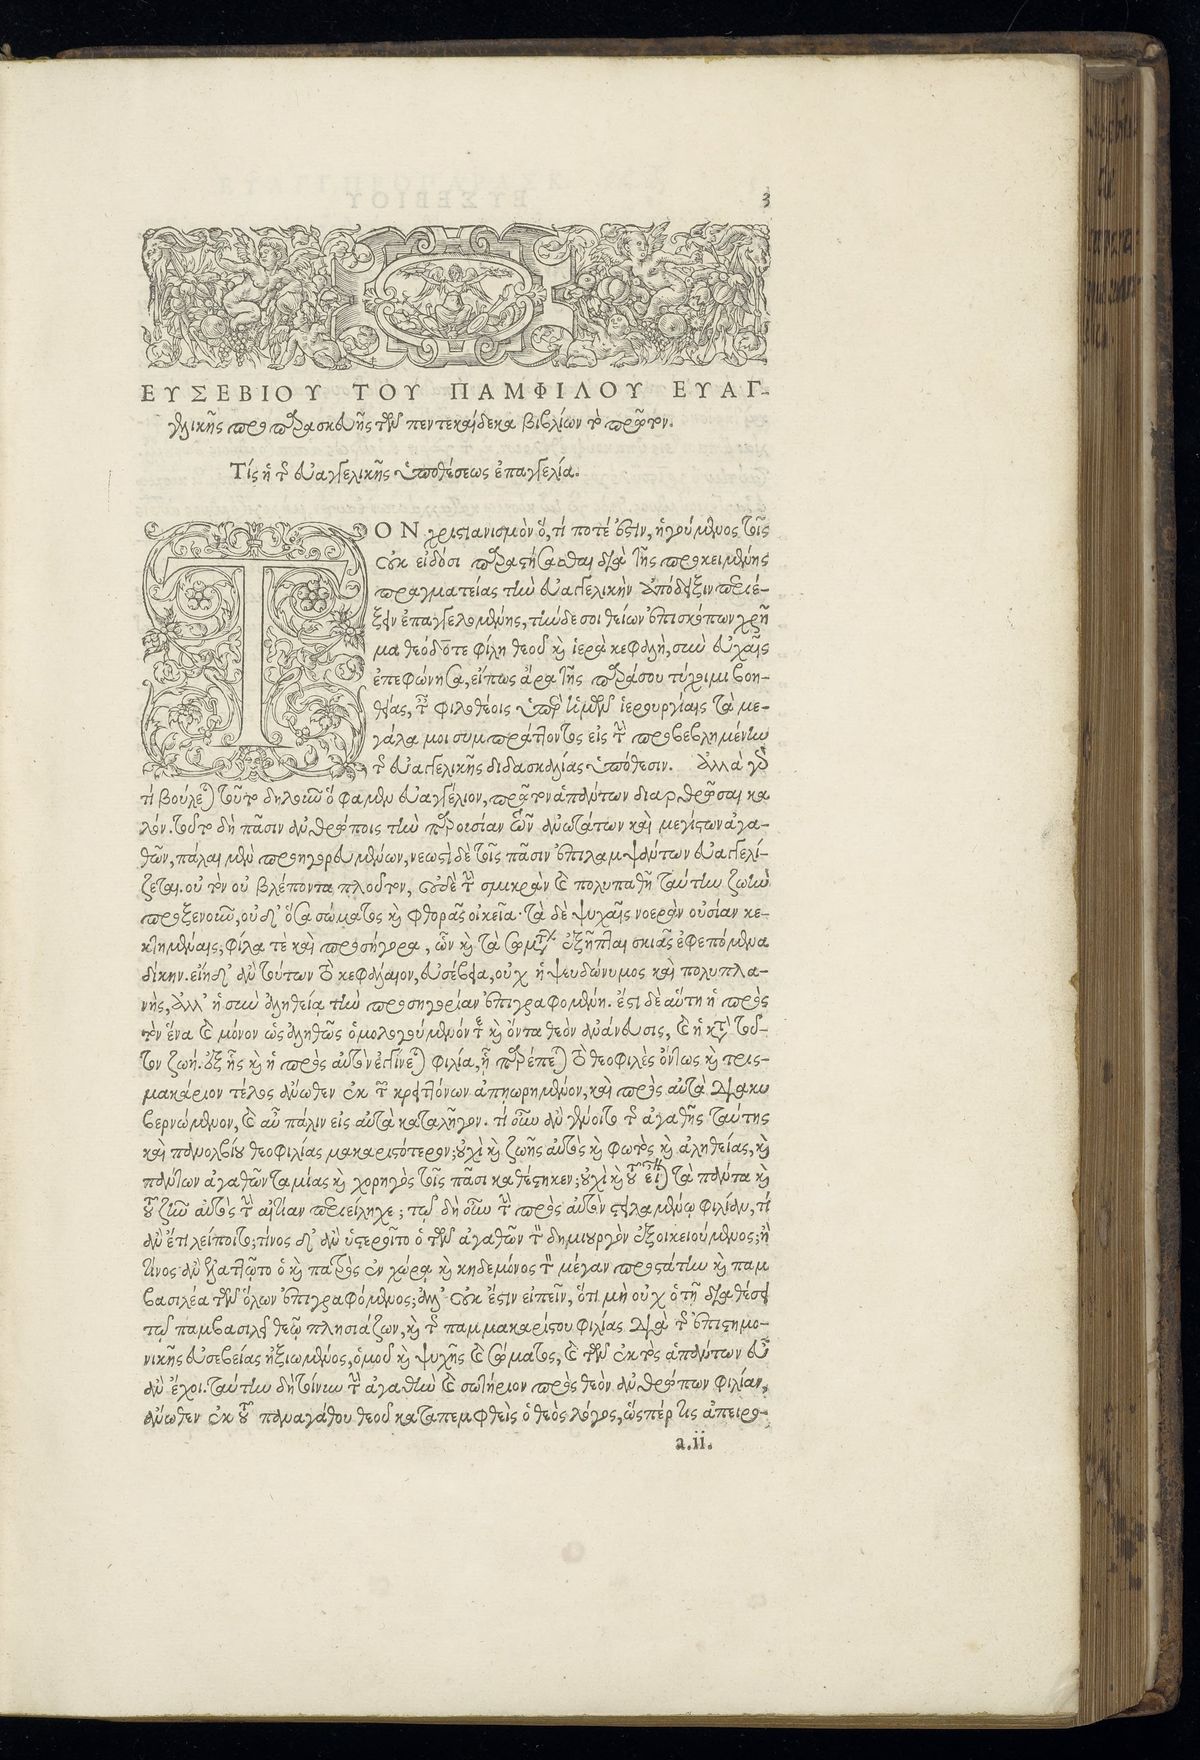 3
ΕΥΣΕΒΙΟΥ ΤΟΥ ΠΑΜΦΙΛΟΥ ΕΥΑΓ-
γελικῆς προπαρασκευῆς τῶν πεντεκαίδεκα βιβλίων τὸ πρῶτον.
Τίς ἡ τῆς εὐαγγελικῆς ὑποθέσεως ἐπαγγελία.
ΤΟΝ χριστιανισμὸν ὅ, τί ποτέ ἐστιν, ἡγούμενος τοῖς
οὐκ εἰδόσι παραστήσασθαι διὰ τῆς προκειμένης
πραγματείας τὴν εὐαγγελικὴν ἀπόδειξιν περιέ-
ξειν ἐπαγγελομένης, τήνδε σοι θείων ἐπισκόπων χρῆ
μα θεόδοτε φίλη θεοῦ καὶ ἱερὰ κεφαλὴ, σὺν εὐχαῖς
ἐπεφώνησα, εἴπως ἄρα τῆς παρὰ σου τύχοιμι βοη-
θείας, ταῖς φιλοθέοις ὑπὲρ ἡμῶν ἱερουργίαις τὰ με-
γάλα μοι συμπράττοντος εἰς τὴν προβεβλημένην
τῆς εὐαγγελικῆς διδασκαλίας ὑπόθεσιν. Ἀλλὰ γὰρ
τί βούλεται τοῦτο δηλοῦν ὅ φαμεν εὐαγγέλιον, πρῶτον ἁπάντων διαρθρῶσαι κα
λόν. τοῦτο δὴ πᾶσιν ἀνθρώποις τὴν παρουσίαν τῶν ἀνωτάτων καὶ μεγίστων ἀγα-
θῶν, πάλαι μὲν προηγορευμένων, νεωστὶ δὲ τοῖς πᾶσιν ἐπιλαμψάντων εὐαγγελί-
ζεται. οὐ τὸν οὐ βλέποντα πλοῦτον, οὐδὲ τὴν σμικρὰν καὶ πολυπαθῆ ταύτην ζωὴν
προξενοῦν, οὐδ' ὅσα σώματος καὶ φθορᾶς οἰκεῖα· τὰ δὲ ψυχαῖς νοερὰν οὐσίαν κε-
κτημέναις, φίλα τὲ καὶ προσήγορα, ὧν καὶ τὰ σωμάτων ἐξήπται σκιᾶς ἐφεπόμενα
δίκην. εἴη δ' ἂν τούτων τὸ κεφάλαιον, εὐσέβεια, οὐχ ἡ ψευδώνυμος καὶ πολυπλα-
νὴς, ἀλλ' ἡ σὺν ἀληθείᾳ τὴν προσηγορίαν ἐπιγραφομένη. ἔστι δὲ αὕτη ἡ πρὸς
τὸν ἕνα καὶ μόνον ὡς ἀληθῶς ὁμολογούμενόν τε καὶ ὄντα θεὸν ἀνάνευσις, καὶ ἡ κατὰ τοῦ-
τον ζωή. ἐξ ἧς καὶ ἡ πρὸς αὐτὸν ἐγγίνεται φιλία, ᾗ πρέπεται τὸ θεοφιλὲς ὄντως καὶ τρισ-
μακάριον τέλος ἄνωθεν ἐκ τῶν κρειττόνων ἀπηωρημένον, καὶ πρὸς αὐτὰ διακυ
βερνώμενον, καὶ αὖ πάλιν εἰς αὐτὰ καταλῆγον. τί οὖν ἂν γένοιτο τῆς ἀγαθῆς ταύτης
καὶ πανολβίου θεοφιλίας μακαριστότερον; οὐχὶ καὶ ζωῆς αὐτὸς καὶ φωτὸς καὶ ἀληθείας, καὶ
πάντων ἀγαθῶν ταμίας καὶ χορηγὸς τοῖς πᾶσι καθέστηκεν; οὐχὶ καὶ τοῦ εἶναι τὰ πάντα καὶ
τοῦ ζῆν αὐτὸς τὴν αἰτίαν περιείληχε; τῷ δὴ οὖν τὴν πρὸς αὐτὸν στειλαμένῳ φιλίαν, τί
ἂν ἔτι λείποιτο; τίνος δ' ἂν ὑστεροῖτο ὁ τῶν ἀγαθῶν τὸν δημιουργὸν ἐξοικειούμενος; ἢ
τίνος ἂν ἡττῷτο ὁ καὶ πατρὸς ἐν χώρᾳ καὶ κηδεμόνος τὸν μέγαν προστάτην καὶ παμ
βασιλέα τῶν ὅλων ἐπιγραφόμενος; ἀλλ' οὐκ ἔστιν εἰπεῖν, ὅτι μὴ οὐχ ὁ τῇ διαθέσει
τῷ παμβασιλεῖ θεῷ πλησιάζων, καὶ τῆς παμμακαρίστου φιλίας διὰ τῆς ἐπιστημο-
νικῆς εὐσεβείας ἠξιωμένος, ὁμοῦ καὶ ψυχῆς καὶ σώματος, καὶ τῶν ἐκτὸς ἁπάντων εὖ
ἂν ἔχοι. ταύτην δὴ τοίνυν τὴν ἀγαθὴν καὶ σωτήριον πρὸς θεὸν ἀνθρώπων φιλίαν,
ἄνωθεν ἐκ τοῦ παναγάθου θεοῦ καταπεμφθεὶς ὁ θεὸς λόγος, ὥσπέρ τις ἀπειρο-
a.ii.